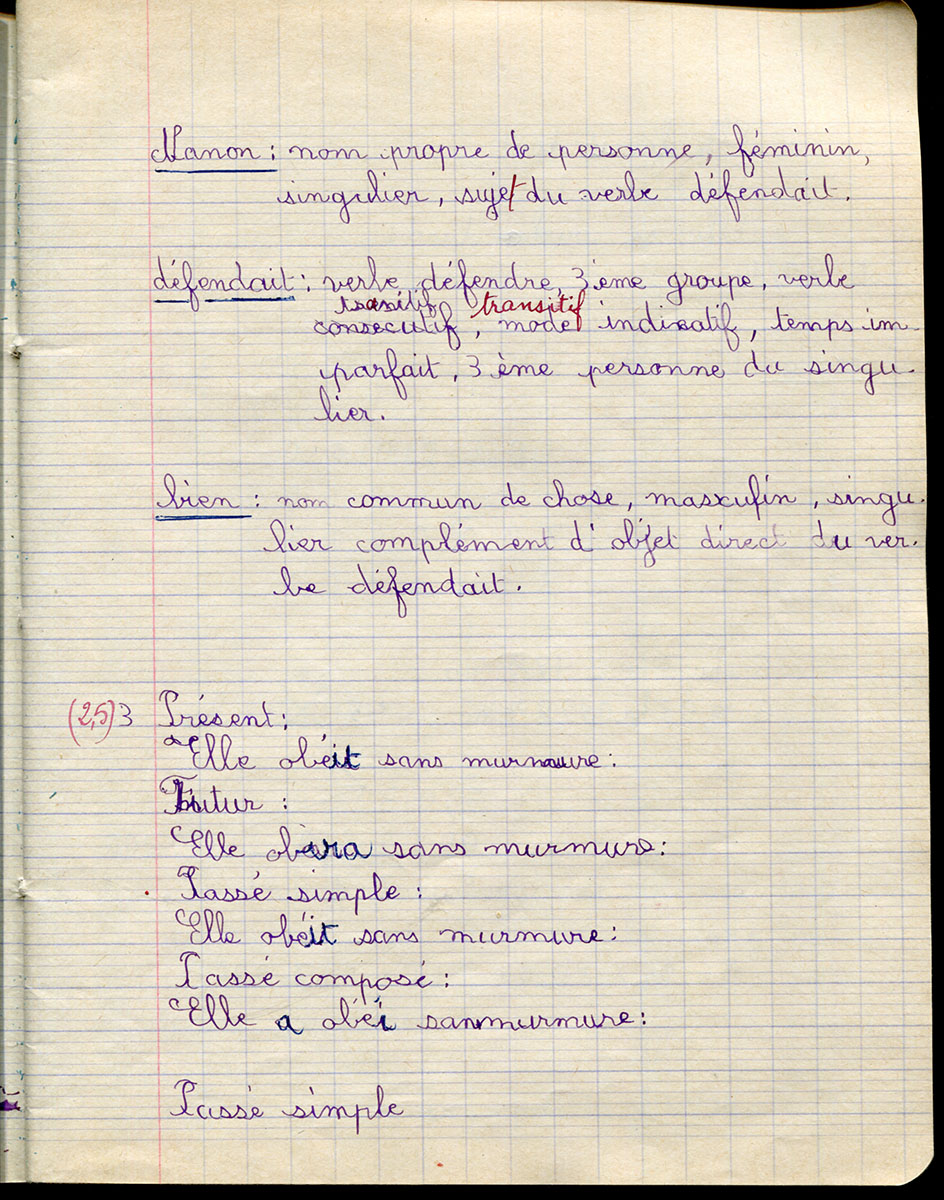 Manon : nom propre de personne, féminin,
singulier, sujet du verbe défendait.
défendait : verbe défendre, 3ème groupe, verbe
transitif
consecutif, mode indicatif, temps im-
parfait, 3ème personne du singu-
lier.
bien : nom commun de chose, masculin, singu-
lier complément d'objet direct du ver-
be défendait.
(2,5) 3 Présent :
Elle obéit sans murmure :
Futur :
Elle obéira sans murmure :
Passé simple :
Elle obéit sans murmure :
Passé composé :
Elle a obéi sans murmure :
Passé simple